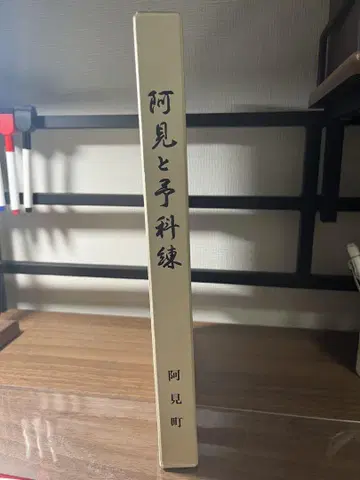 阿見と予科練
阿見町